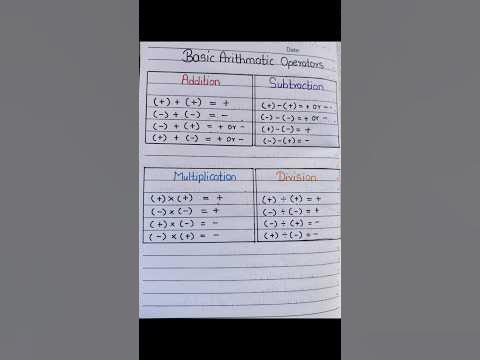 Date:
Basic Arithmatic Operators
Addition
(+) + (+) = +
(-) + (-) = -
(-) + (+) = + or -
(+) + (-) = + or -
Subtraction
(+) - (+) = + or -
(-) - (-) = + or -
(+) - (-) = +
(-) - (+) = -
Multiplication
(+) × (+) = +
(-) × (-) = +
(+) × (-) = -
(-) × (+) = -
Division
(+) ÷ (+) = +
(-) ÷ (-) = +
(-) ÷ (+) = -
(+) ÷ (-) = -